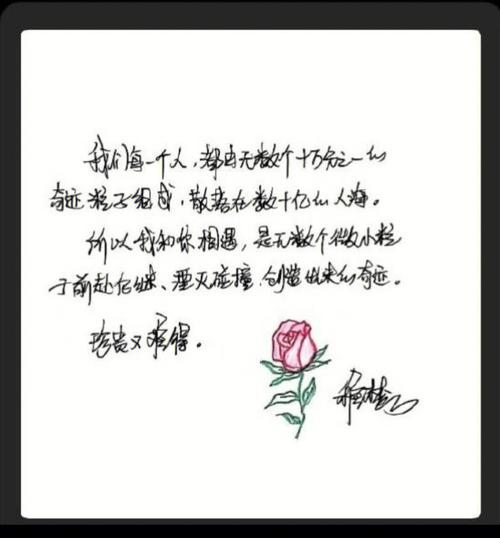 我们每一个人，都由无数个十万分之一的
奇迹粒子组成，散落在数十亿的人海。
所以我和你相遇，是无数个微小粒
子前赴后继、湮灭碰撞，创造出来的奇迹。
珍贵又难得。